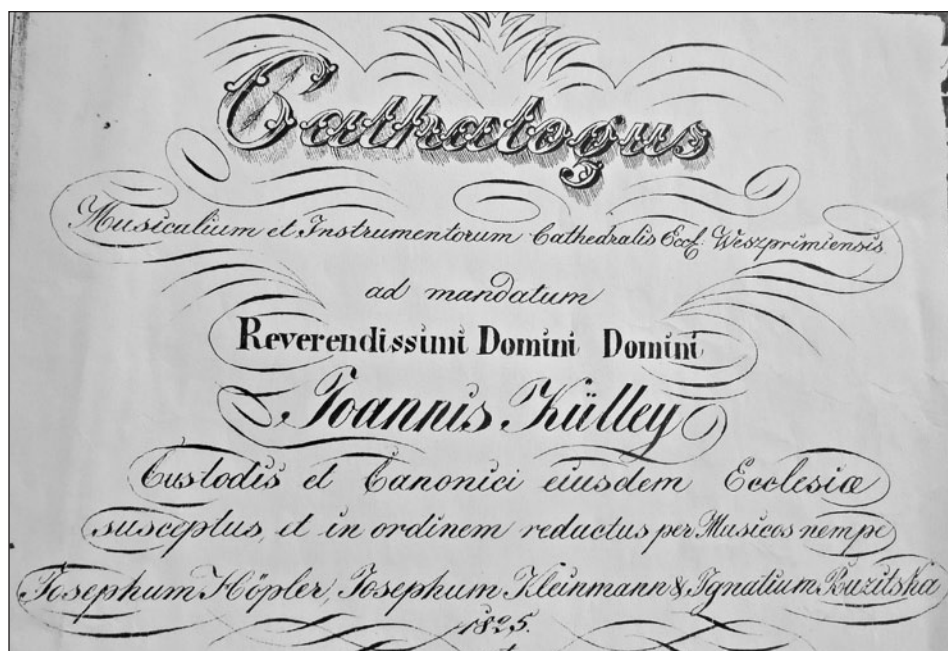 Cathalogus
Musicalium et Instrumentorum Cathedralis Eccl. Weszprimiensis
ad mandatum
Reverendissimi Domini Domini
Joannis Külley
Custodis et Canonici eiusdem Ecclesiæ
susceptus, et in ordinem reductus per Musicos nempe
Josephum Höpler, Josephum Kleinmann & Ignatium Ruzitska
1825.